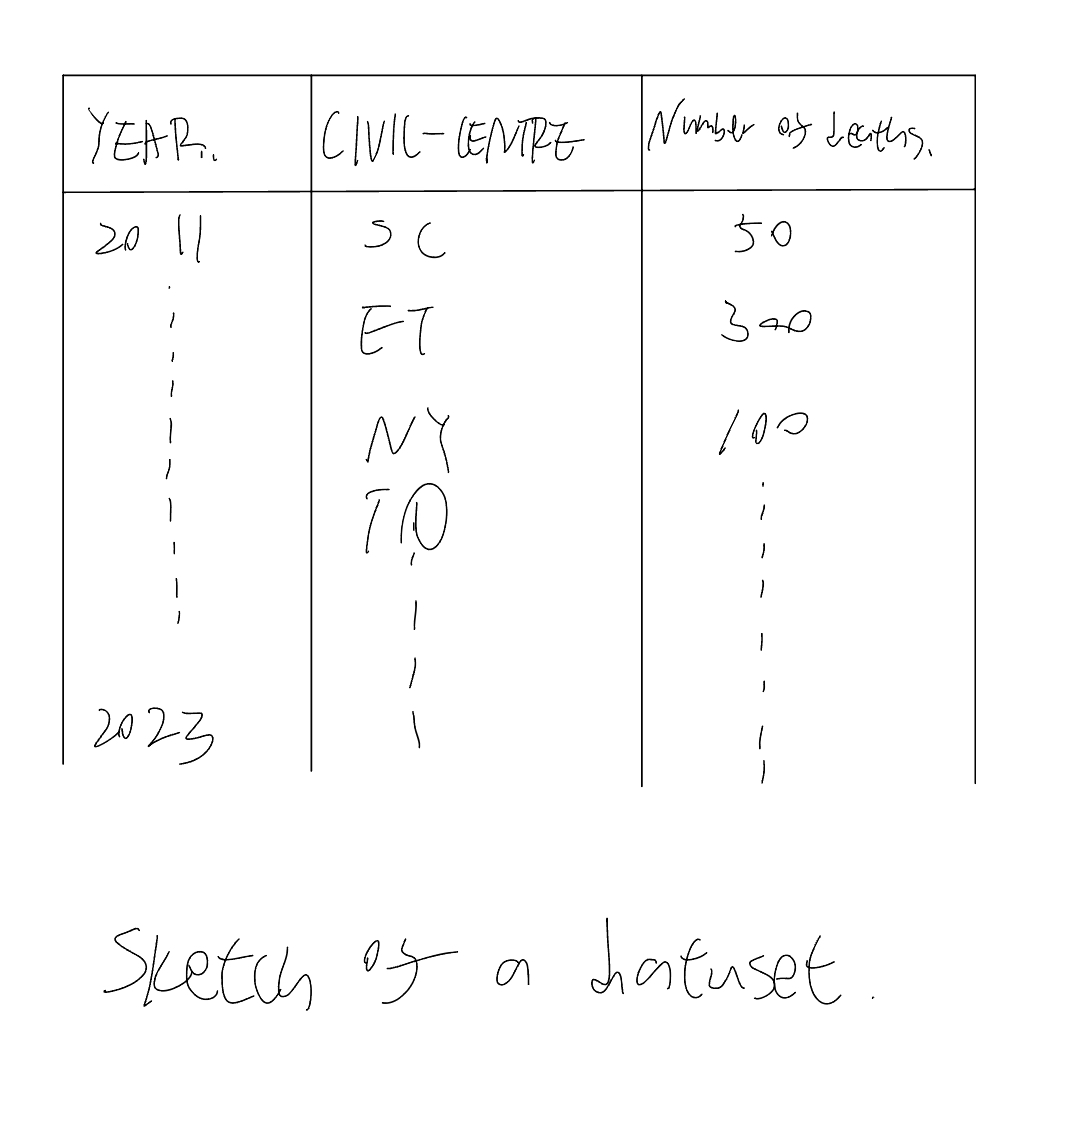 YEAR. CIVIL-CENTRE Number of deaths.
2011 SC 50
ET 300
NY 100
TO
2023
Sketch of a dataset.